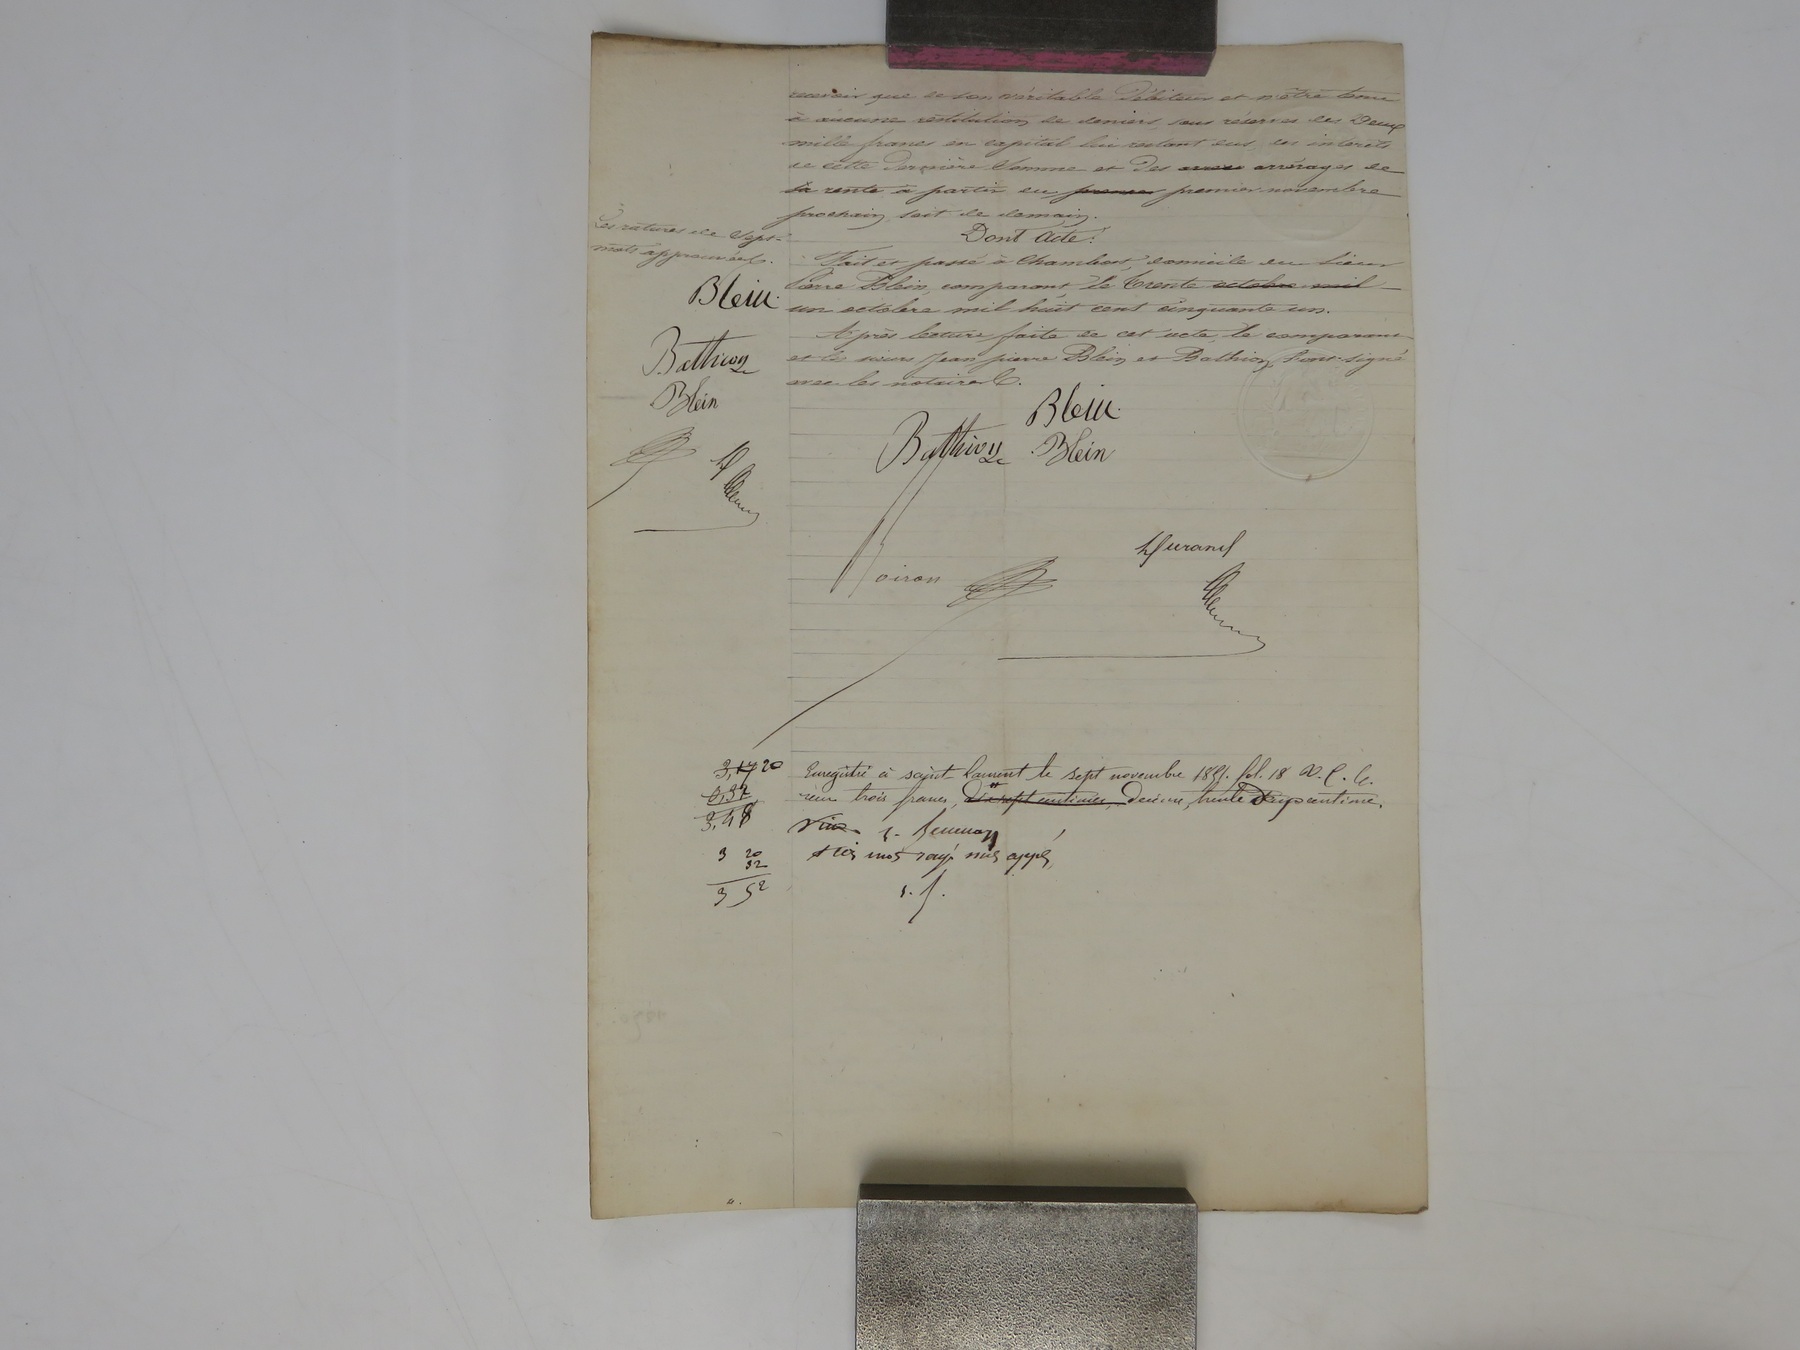 recevoir que de son véritable débiteur et n'être tenu
à aucune restitution de deniers, sous réserves des Deux
mille francs en capital lui restant dus, des intérêts
de cette dernière somme et des arrérages de
la rente à partir du premier novembre
prochain, soit de demain.
Dont Acte.
Les ratures de sept
mots approuvées.
Blein
Bathion
Blein
Fait et passé à Chambost, domicile du sieur
Pierre Blein, comparant, Le trente octobre mil
un octobre mil huit cent cinquante un.
Après lecture faite de cet acte, le comparant
et les sieurs Jean pierre Blein et Bathion l'ont signé
avec les notaires.
Blein
Bathion Blein
Durand
oiron
3,17 20
0,32
3,48
3 20
32
3 52
Enregistré à saint Laurent le sept novembre 1851. fol. 18
reçu trois francs, dix sept centimes, décime, trente deux centimes.